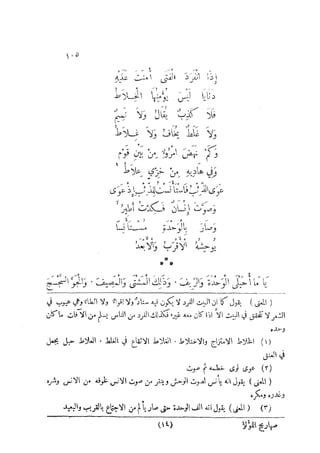 ١٠٥
إِذَا انْفَرَدَ الْفَتَى أُمِنَتْ عَلَيْهِ
دَنَايَا لَيْسَ يُؤْمِنُهَا الْخِلَاطُ
فَلَا كَذِبٌ يُقَالُ وَلَا نَمِيمٌ
وَلَا غَلَطٌ يُخَافُ وَلَا غِلَاطُ
وَكَمْ نَهَضَ امْرُؤٌ مِنْ بَيْنِ قَوْمٍ
وَفِي هَادِيهِ مِنْ خِزْيٍ عِلَاطُ ١
عَوَى الذِّئْبُ فَاسْتَأْنَسْتُ لِلذِّئْبِ إِذْ عَوَى
وَصَوَّتَ إِنْسَانٌ فَكِدْتُ أَطِيرُ ٢
وَصَارَ بِالْوَحْدَةِ مُسْتَأْنِسًا
يُوحِشُهُ الْأَقْرَبُ وَالْأَبْعَدُ ٣
***
يَا مَا أُحَيْلَى الْوَحْدَةَ وَالرِّيفَ ، وَذَلِكَ الْمَشْتَى وَالْمَصِيفَ ، وَالْجَوَّ السَّجْسَجَ
( المعنى ) يقول كما ان البيت الفرد لا يكون فيه سناد ولا اقواء ولا ابطاء وهي عيوب في
الشعر لا تتحقق في البيت الا اذا كان معه غيره فكذلك الفرد من الناس يسلم من الآفات ما كان
وحده
(١) الخلاط الامتزاج والاختلاط . الغلاط الايقاع في الغلط . العلاط حبل يجعل
في العنق
(٢) عوى لوى خطمه ثم صوت
( المعنى ) يقول انه يأنس لصوت الوحش وينفر من صوت الانس لخوفه من الانس وشره
وغدره ومكره
(٣) ( المعنى ) يقول انه الف الوحدة حتى صار يألم من الاجتماع بالقريب والبعيد
صهاريج اللؤلؤ (١٤)